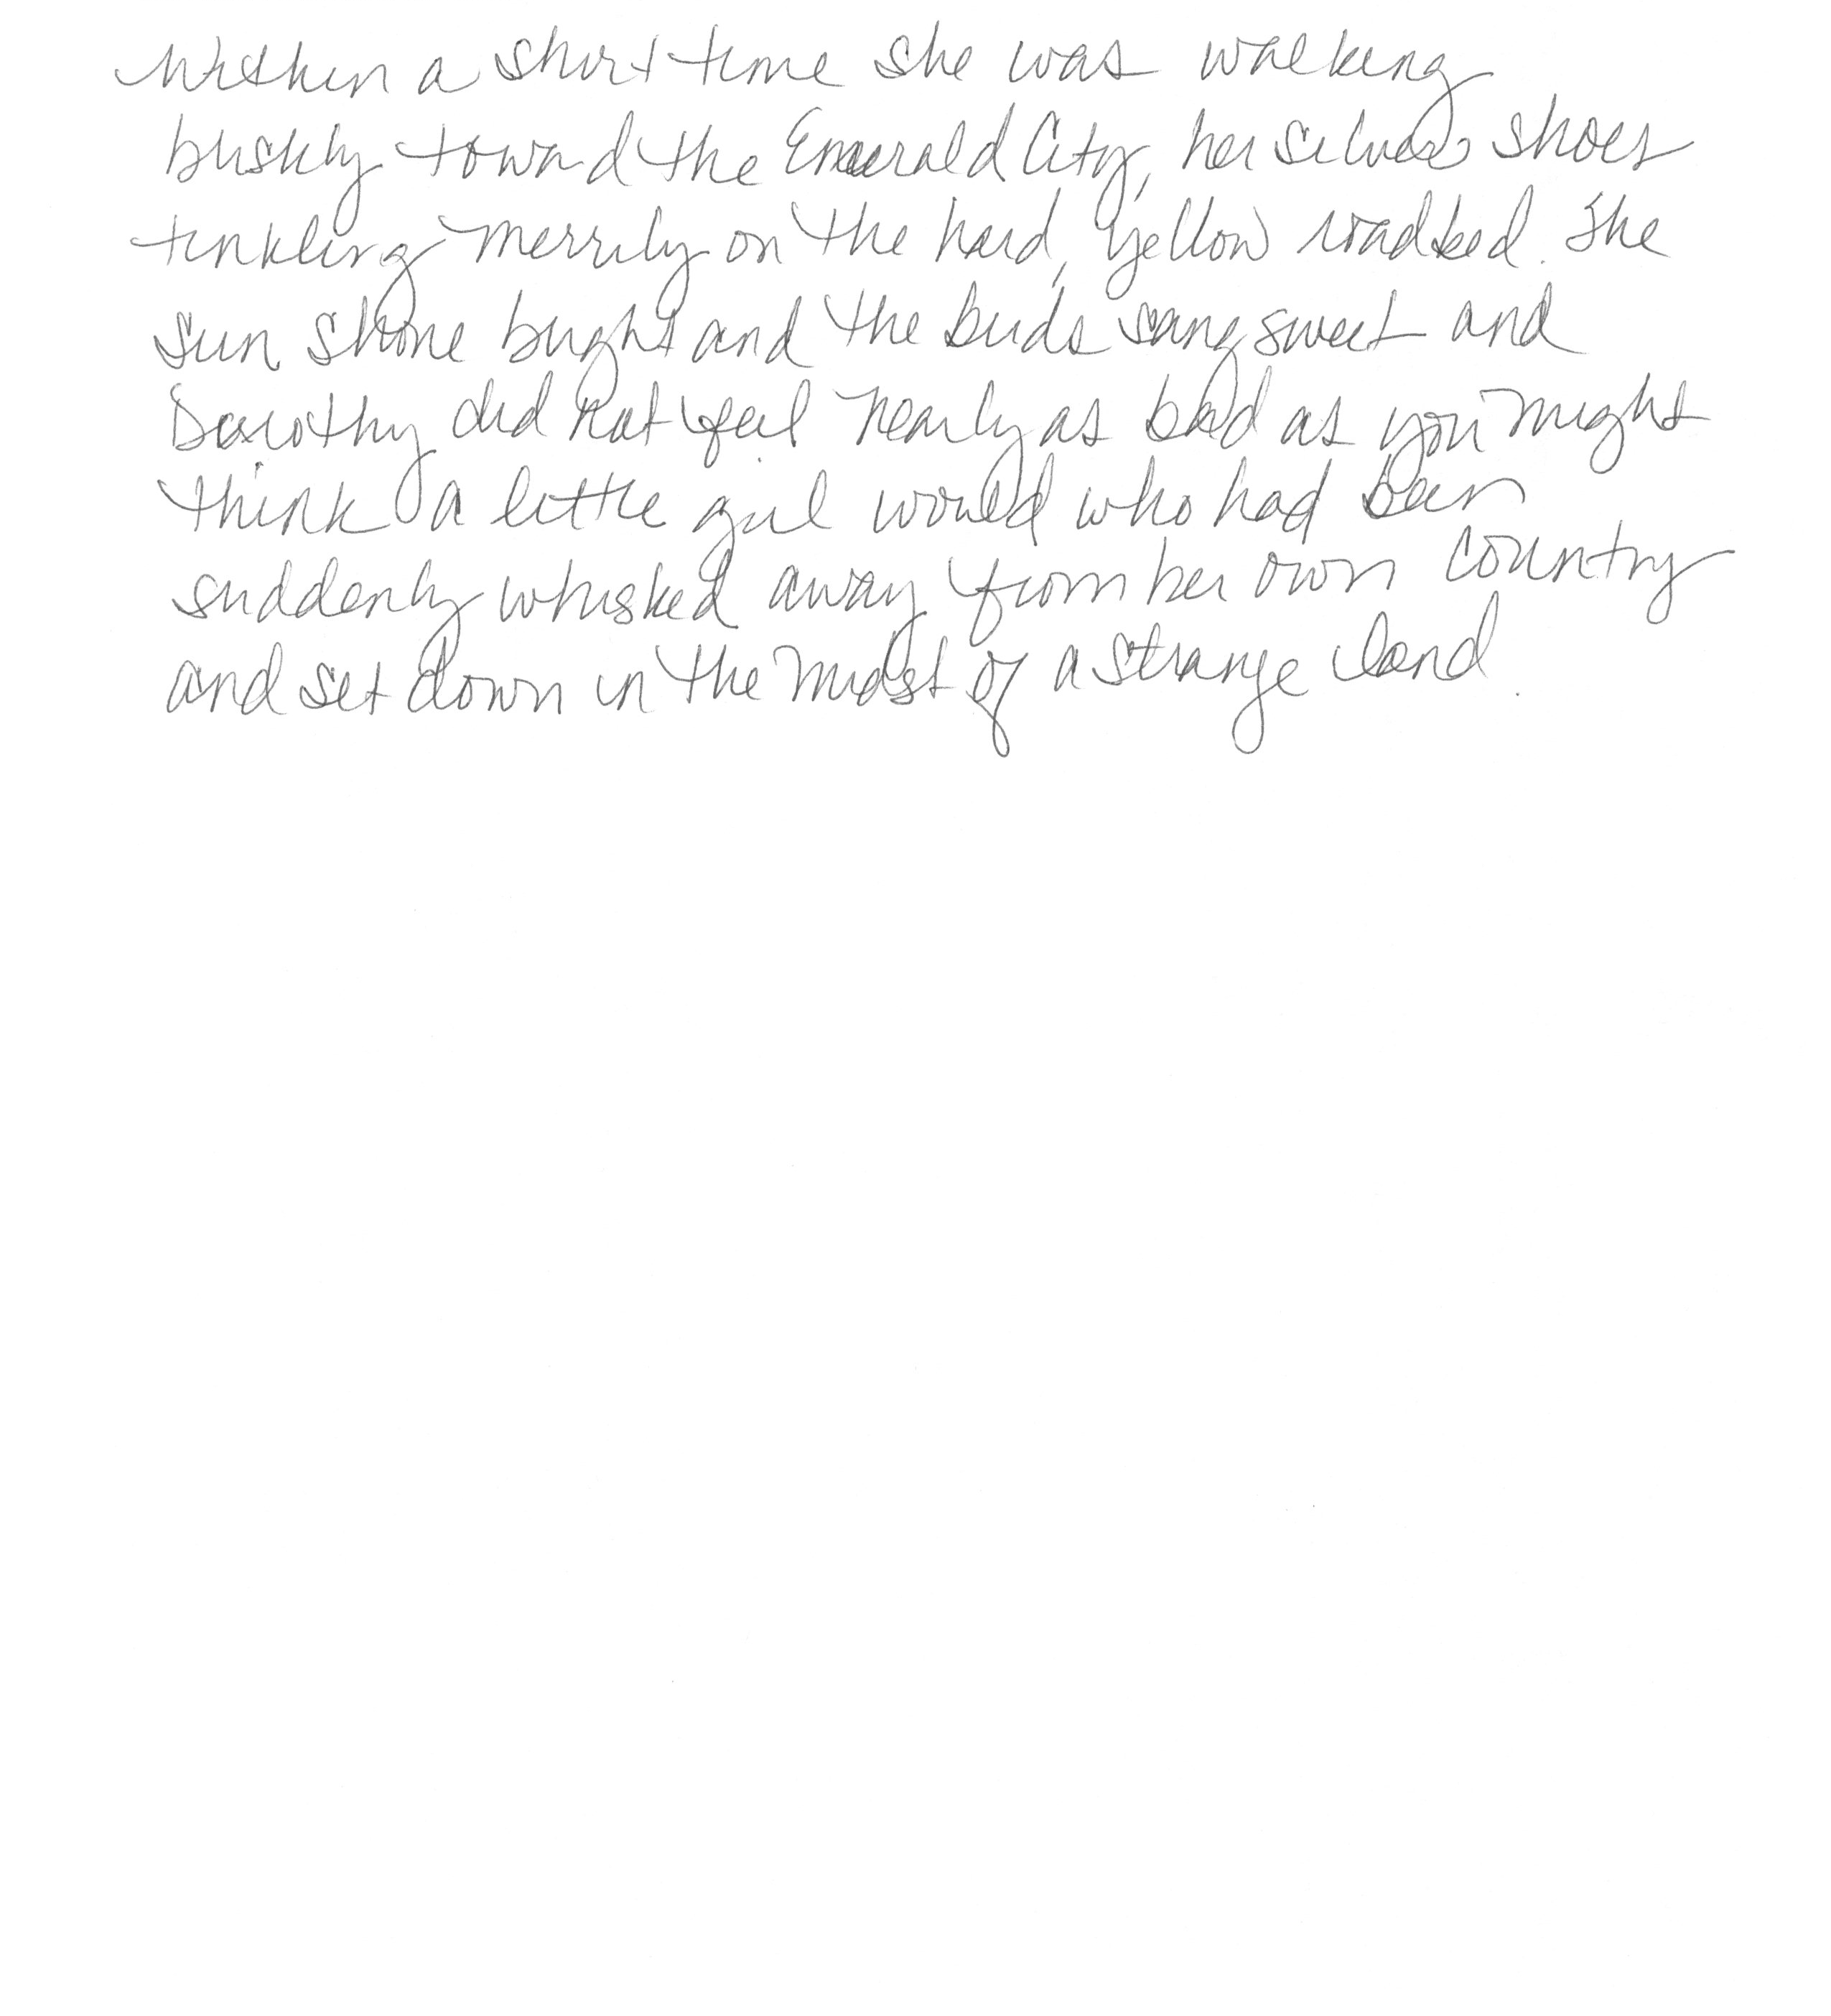 Within a short time she was walking
briskly toward the Emerald City, her silver shoes
tinkling merrily on the hard, yellow roadbed. The
sun shone bright and the birds sang sweet and
Dorothy did not feel nearly as bad as you might
think a little girl would who had been
suddenly whisked away from her own country
and set down in the midst of a strange land.